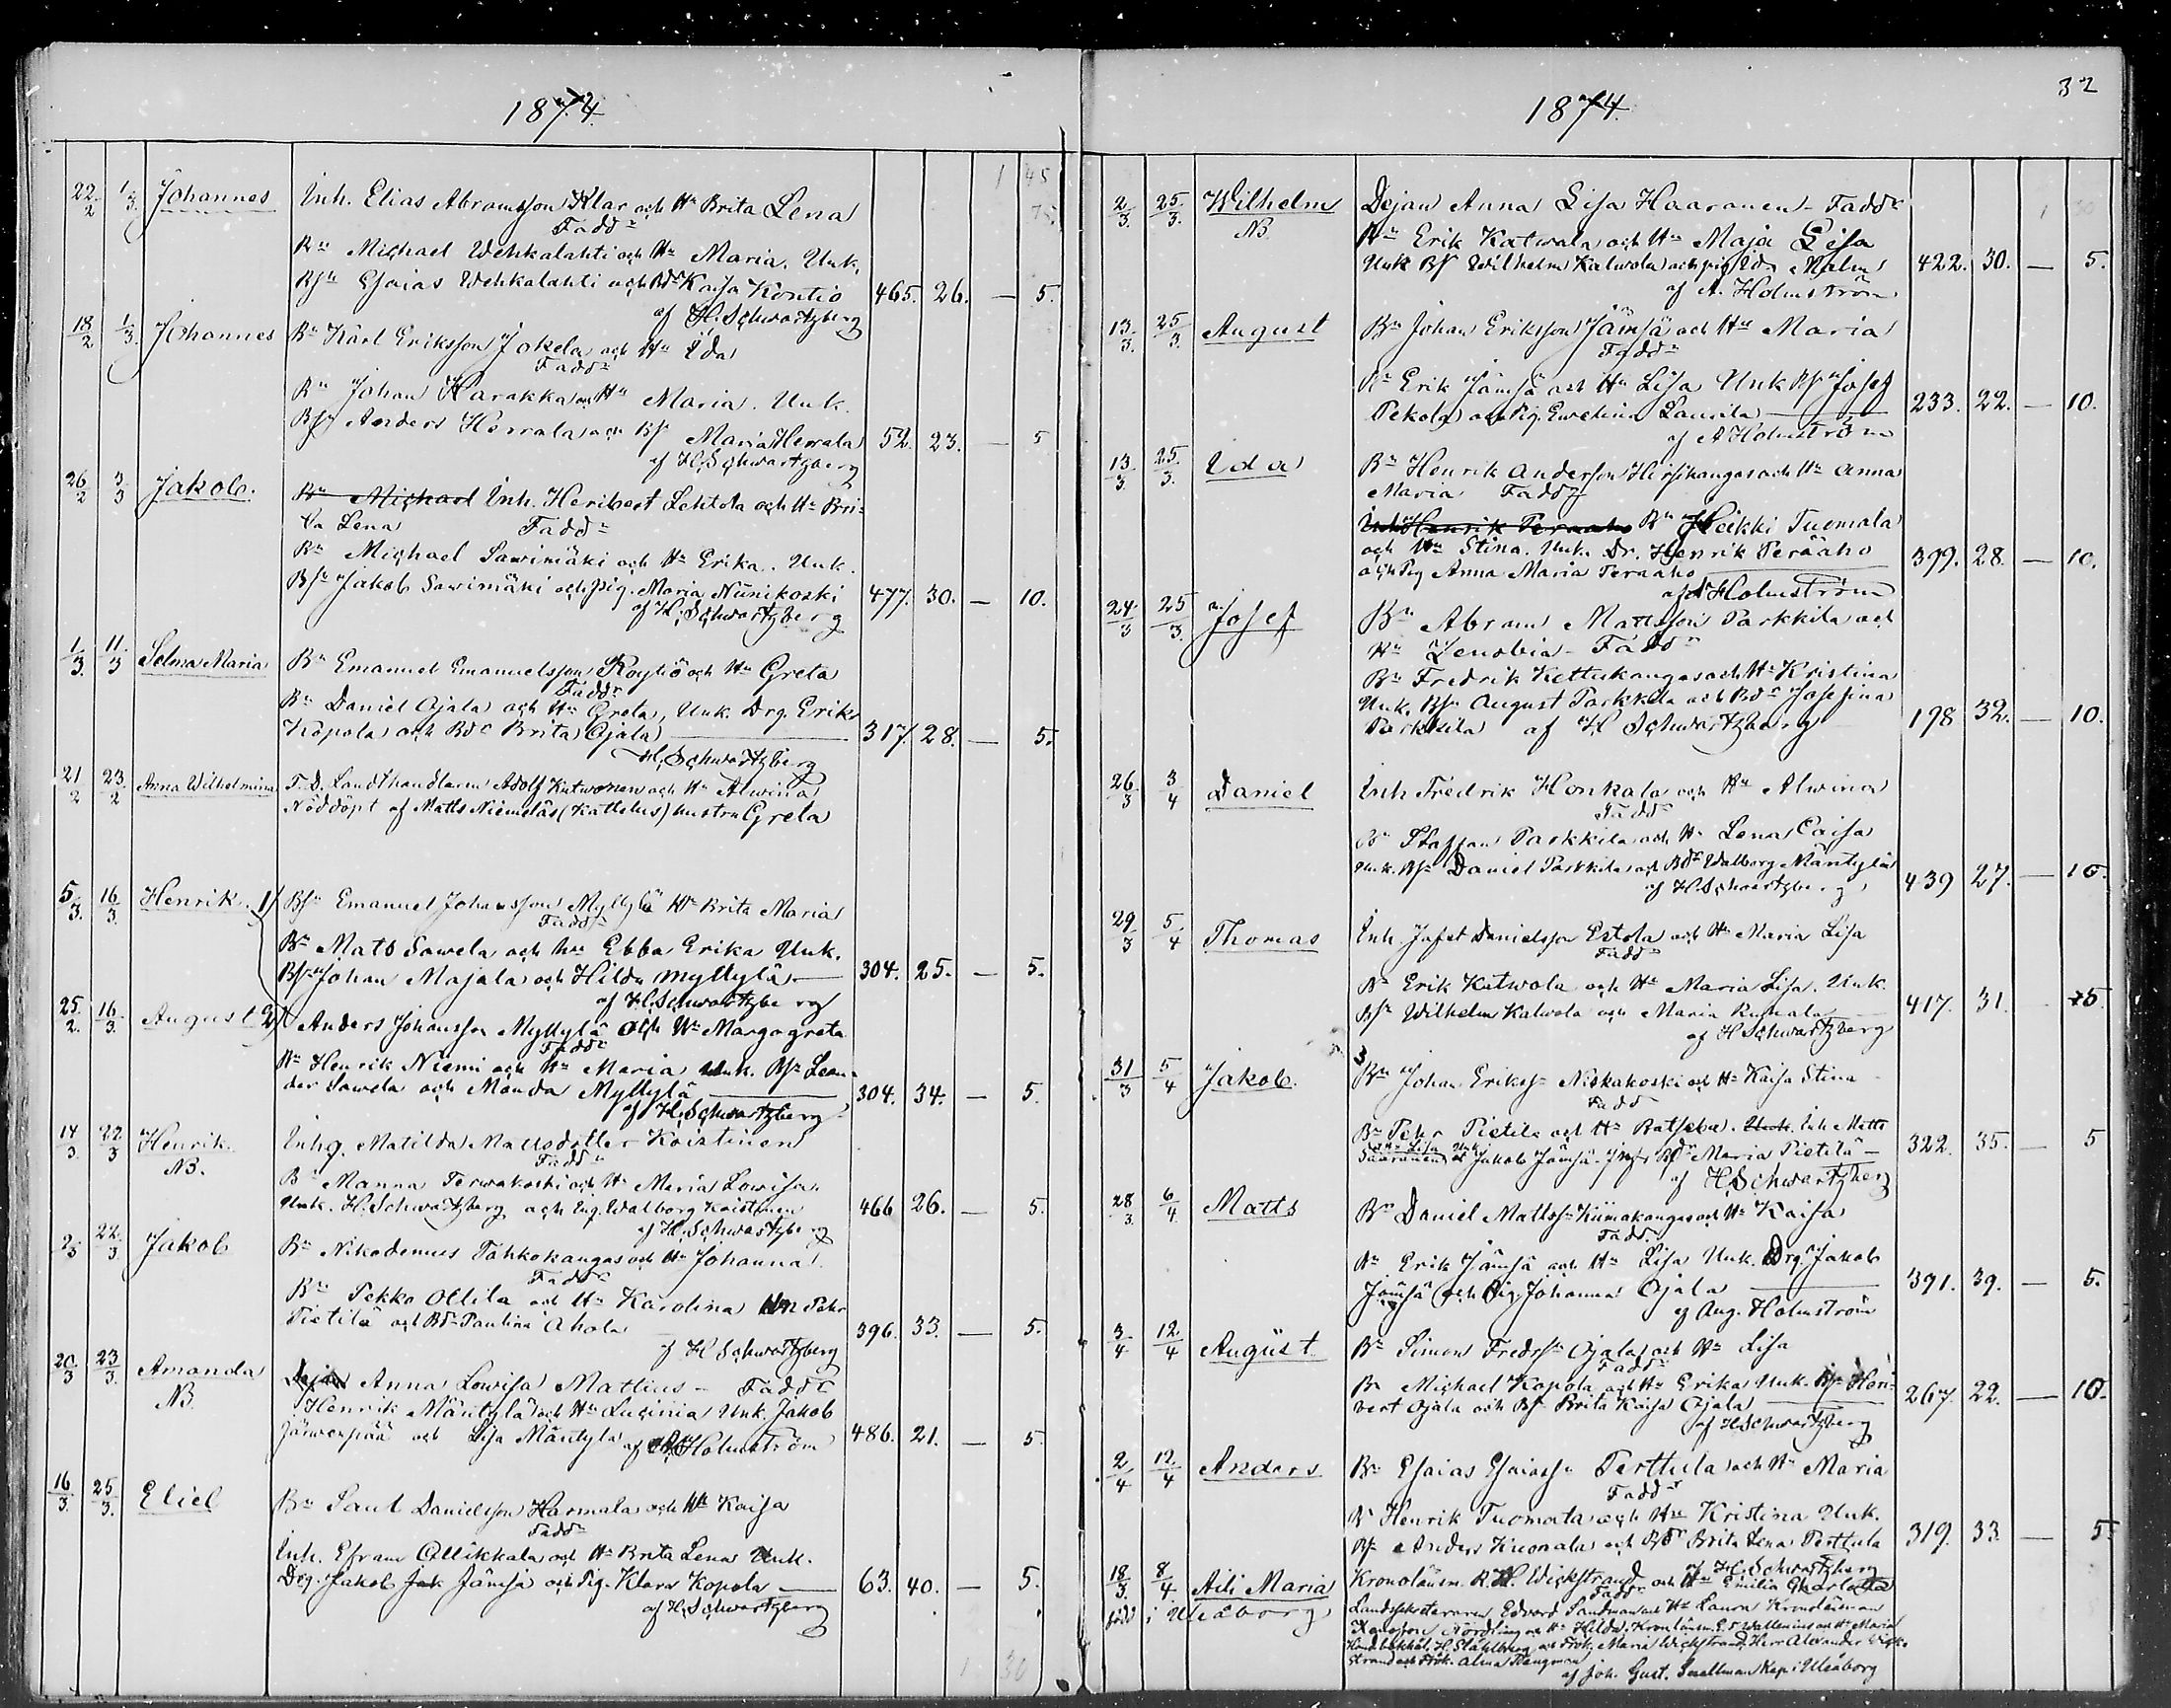 1874.
1 45
75.
22/2 1/3. Johannes Inh. Elias Abramsson Klar och Hu Brita Lena
Faddr
Bn Michael Wehkalahti och Hu Maria. Unk.
Bsn Esaias Wehkalahti och Bdr Kaisa Kontio 465. 26. — 5.
af H. Schwartzberg
18/2 1/3. Johannes Bn Karl Eriksson Jokela och Hu Ida
Faddr
Bn Johan Harakka och Hu Maria. Unk.
Bsn Anders Herrala och Bdr Maria Herrala 52. 23. — 5
af H. Schwartzberg
26/2 3/3 Jakob. Bn Michael Inh. Heribert Lehtola och Hu Bri-
ta Lena Faddr
Bn Michael Sawimäki och Hu Erika. Unk.
Bsn Jakob Sawimäki och Pig. Maria Niinikoski 477. 30. — 10.
af H. Schwartzberg
1/3. 11/3 Selma Maria Bn Emanuel Emanuelsson Röytiö och Hu Greta
Faddr
Bn Daniel Ojala och Hu Greta, Unk. Drg. Erik
Kopola och Bdr Brita Ojala 317. 28. — 5.
H. Schwartzberg
21/2 23/2 Anna Wilhelmina F.D. Landthandlaren Adolf Kutwonen och Hu Alwina
Nöddöpt af Matts Niemeläs (Kattelus) hustru Greta
5/3. 16/3 Henrik. 1/ Bsn Emanuel Johansson Myllylä Hu Brita Maria
Faddr
Bn Mats Sawela och hu Ebba Erika Unk.
Bsn Johan Majala och Hilda Myllylä 304. 25. — 5.
af H. Schwartzberg
25/2. 16/3. August 2/ Anders Johansson Myllylä och Hu Margogreta
Faddr
Bn Henrik Niemi och Hu Maria Unk. Bsn Lean-
der Sawela och Manda Myllylä 304. 34. — 5.
af H. Schwartzberg
14/3. 22/3 Henrik. Inhg. Matilda Mattsdotter Koistinen
NB. Faddr
Bn Manna Terwakoski och Hu Maria Lowisa.
Unk. H. Schwartzberg och Pig. Walborg Koistinen 466 26. — 5.
af H. Schwartzberg
2/3 22/3. Jakob Bn Nikodemus Tähkokangas och Hu Johanna
Faddr
Bn Pekka Ollila och Hu Karolina Unk Pehr
Pietilä och Bdr Paulina Ahola 396. 33. — 5.
af H Schwartzberg
20/3 23/3. Amanda Dejan Anna Lowisa Matlius – Faddr
NB. Henrik Mäntylä och Hu Lucinia Unk. Jakob
Järwenpää och Lisa Mäntylä af A. Holmström 486. 21. — 5.
16/3. 25/3. Eliel Bn Saul Danielsson Harmala och Hu Kaisa
Faddr
Inh. Efram Ollikkala och Hu Brita Lena Unk.
Drg. Jakob Jak Jämsä och Pig. Klara Kopola 63. 40. — 5.
af H. Schwartzberg
1 30
1874.
32
1 30
2/3. 25/3. Wilhelm Dejan Anna Lisa Haaranen – Faddr
NB. Bn Erik Katwala och Hu Maja Lisa
Unk Bsn Wilhelm Kalwola och pig Ida Malm 422. 30. — 5.
af A. Holmström
13/3. 25/3. August Bn Johan Eriksson Jämsä och Hu Maria
Faddr
Bn Erik Jämsä och Hu Lisa Unk Bsn Josef
Pekola och Pig. Ewelina Laurila 233. 22. — 10.
af A Holmström
13/3. 25/3. Ida Bn Henrik Andersson Hirsikangas och Hu Anna
Maria Faddr
Inh Henrik Peraaho Bn Heikki Tuomala
och Hu Stina. Unk. Dr. Henrik Peräaho
och Pig Anna Maria Peraaho 399. 28. — 10.
af A Holmström
24/3 25/3. Josef Bn Abram Mattsson Parkkila och
Hu Zenobia – Faddr
Bn Fredrik Kettukangas och Hu Kristina
Unk. Bsn August Parkkila och Bdr Josefina
Parkkila af H Schwartzberg 198 32. — 10.
26/3 3/4 Daniel Inh Fredrik Honkala och Hu Alwina
Faddr
Bn Staffan Parkkila och Hu Lena Caisa
Unk. Bsn Daniel Parkkila och Bdr Walborg Mäntylä 439 27. — 10.
af H. Schwartzberg
29/3 5/4 Thomas Inh Jafet Danielsson Estola och Hu Maria Lisa
Faddr
Bn Erik Katwala och Hu Maria Lisa. Unk.
Bsn Wilhelm Kalwola och Maria Rumala 417. 31. 5.
af H Schwartzberg
31/3 5/4 Jakob. Bn Johan Erikss. Niskakoski och Hu Kaisa Stina
Fadd
Bn Pehr Pietilä och Hu Batseba. Unk. Inh Matts
Saaranen och Lisa Unk. Jakob Jämsä Bdr Maria Pietilä – 322. 35. — 5
af H. Schwartzberg
28/3. 6/4. Matts Bn Daniel Mattss. Kiimakangas och Hu Kaisa
Fadd
Bn Erik Jämsä och Hu Lisa Unk. Drg. Jakob
Jämsä och Pig. Johanna Ojala 391. 39. — 5.
af Aug. Holmström
3/4 12/4 August Bn Simon Fredrsn Ojala och Hu Lisa
Faddr
Bn Michael Kopola och Hu Erika Unk. Bsn Heri-
bert Ojala och Bdr Brita Kaisa Ojala 267. 22. — 10.
af H Schwartzberg
2/4 12/4 Anders Bn Esaias Esaiass. Perttula och Hu Maria
Faddr
Bn Henrik Tuomala och Hu Kristina Unk.
Bsn Anders Knuonala och Bdr Brita Lena Perttula 319. 33 — 5.
af H. Schwartzberg
18/3. 8/4 Aili Maria Kronolänsm. K. H. Wickstrand och Hu Emilia Charlotta
född i Uleåborg Faddr
Landssekreteraren Edvard Sandman och Hu Laura Kronolänsman
Nordling och Hu Hilda, Kronlänsm. E. F. Wallenius och Hu Maria
H. Ståhlberg och Frök. Maria Wickstrand, Herr Alexander Wick-
strand och Frök. Alma Tengman
af Joh. Gust. Snellman Kap. i Uleåborg